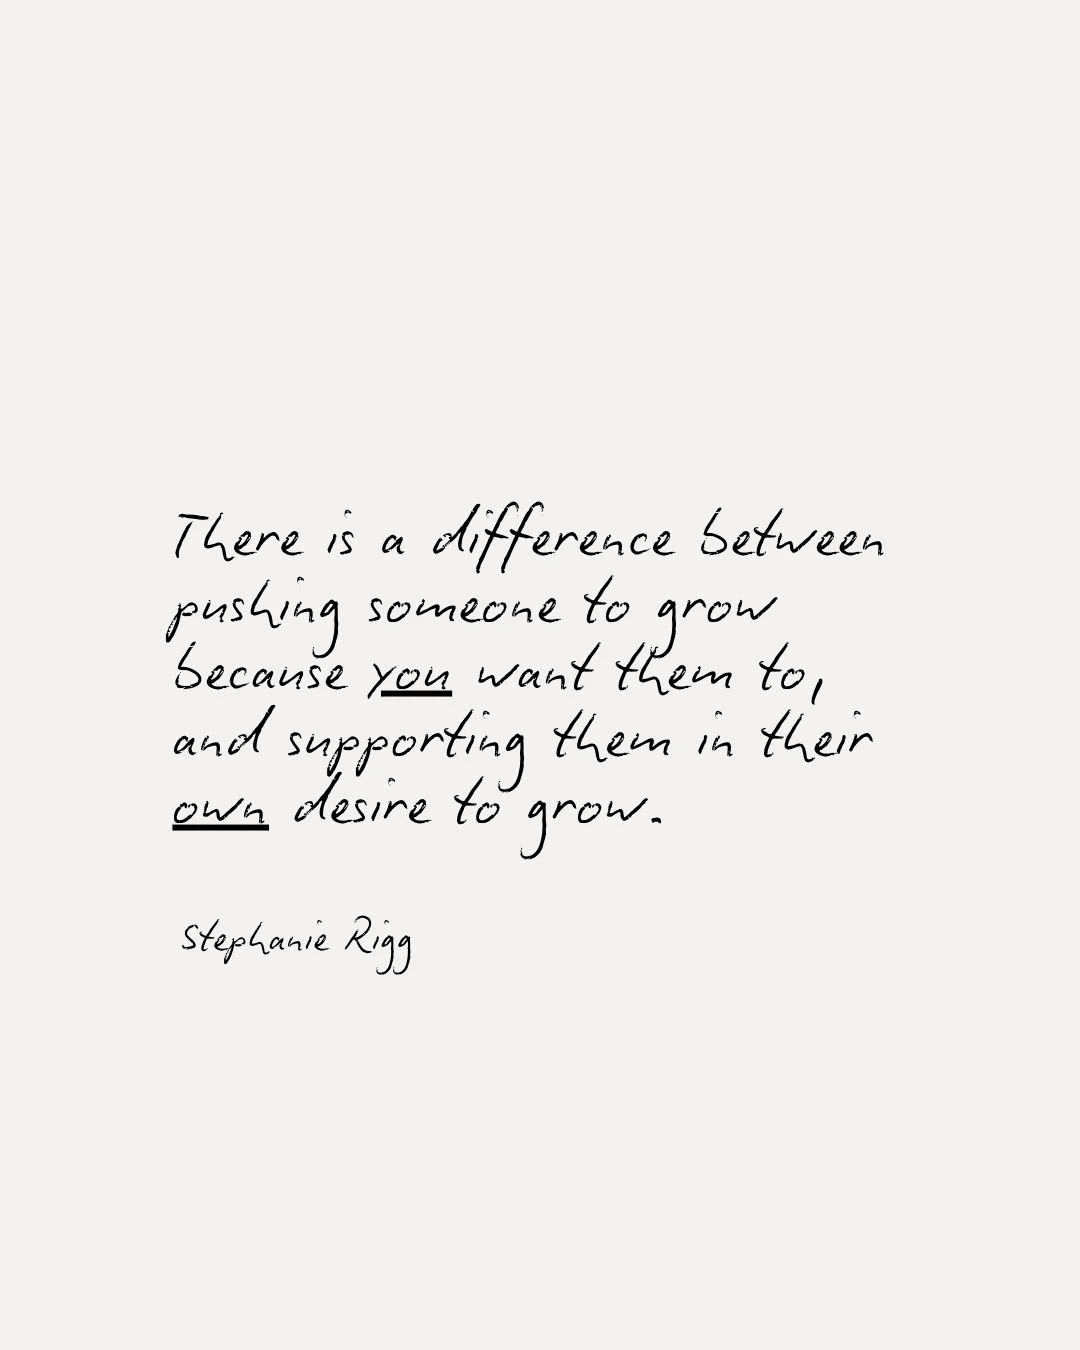 There is a difference between
pushing someone to grow
because you want them to,
and supporting them in their
own desire to grow.
Stephanie Rigg